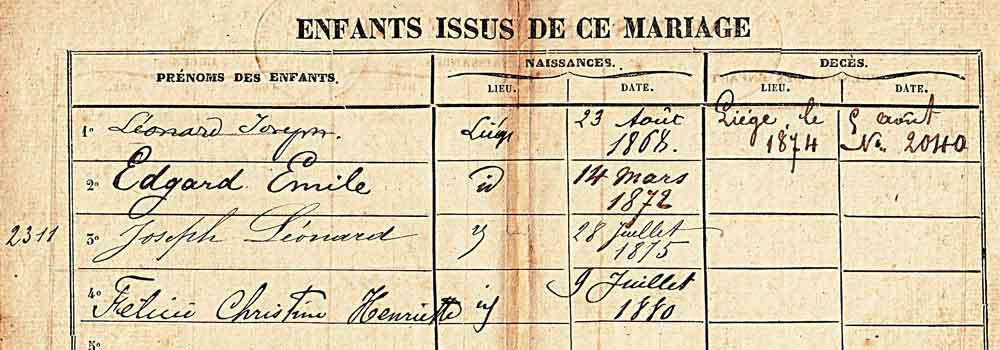 ENFANTS ISSUS DE CE MARIAGE
PRÉNOMS DES ENFANTS. NAISSANCES. DÉCÈS.
LIEU. DATE. LIEU. DATE.
1º Léonard Joseph. Liége 23 Août 1868. Liége, le 1874 5 août No. 2040
2º Edgard Emile id 14 Mars 1872
2311 3º Joseph Léonard id 28 Juillet 1875
4º Félicie Christine Henriette id 9 Juillet 1880
5º